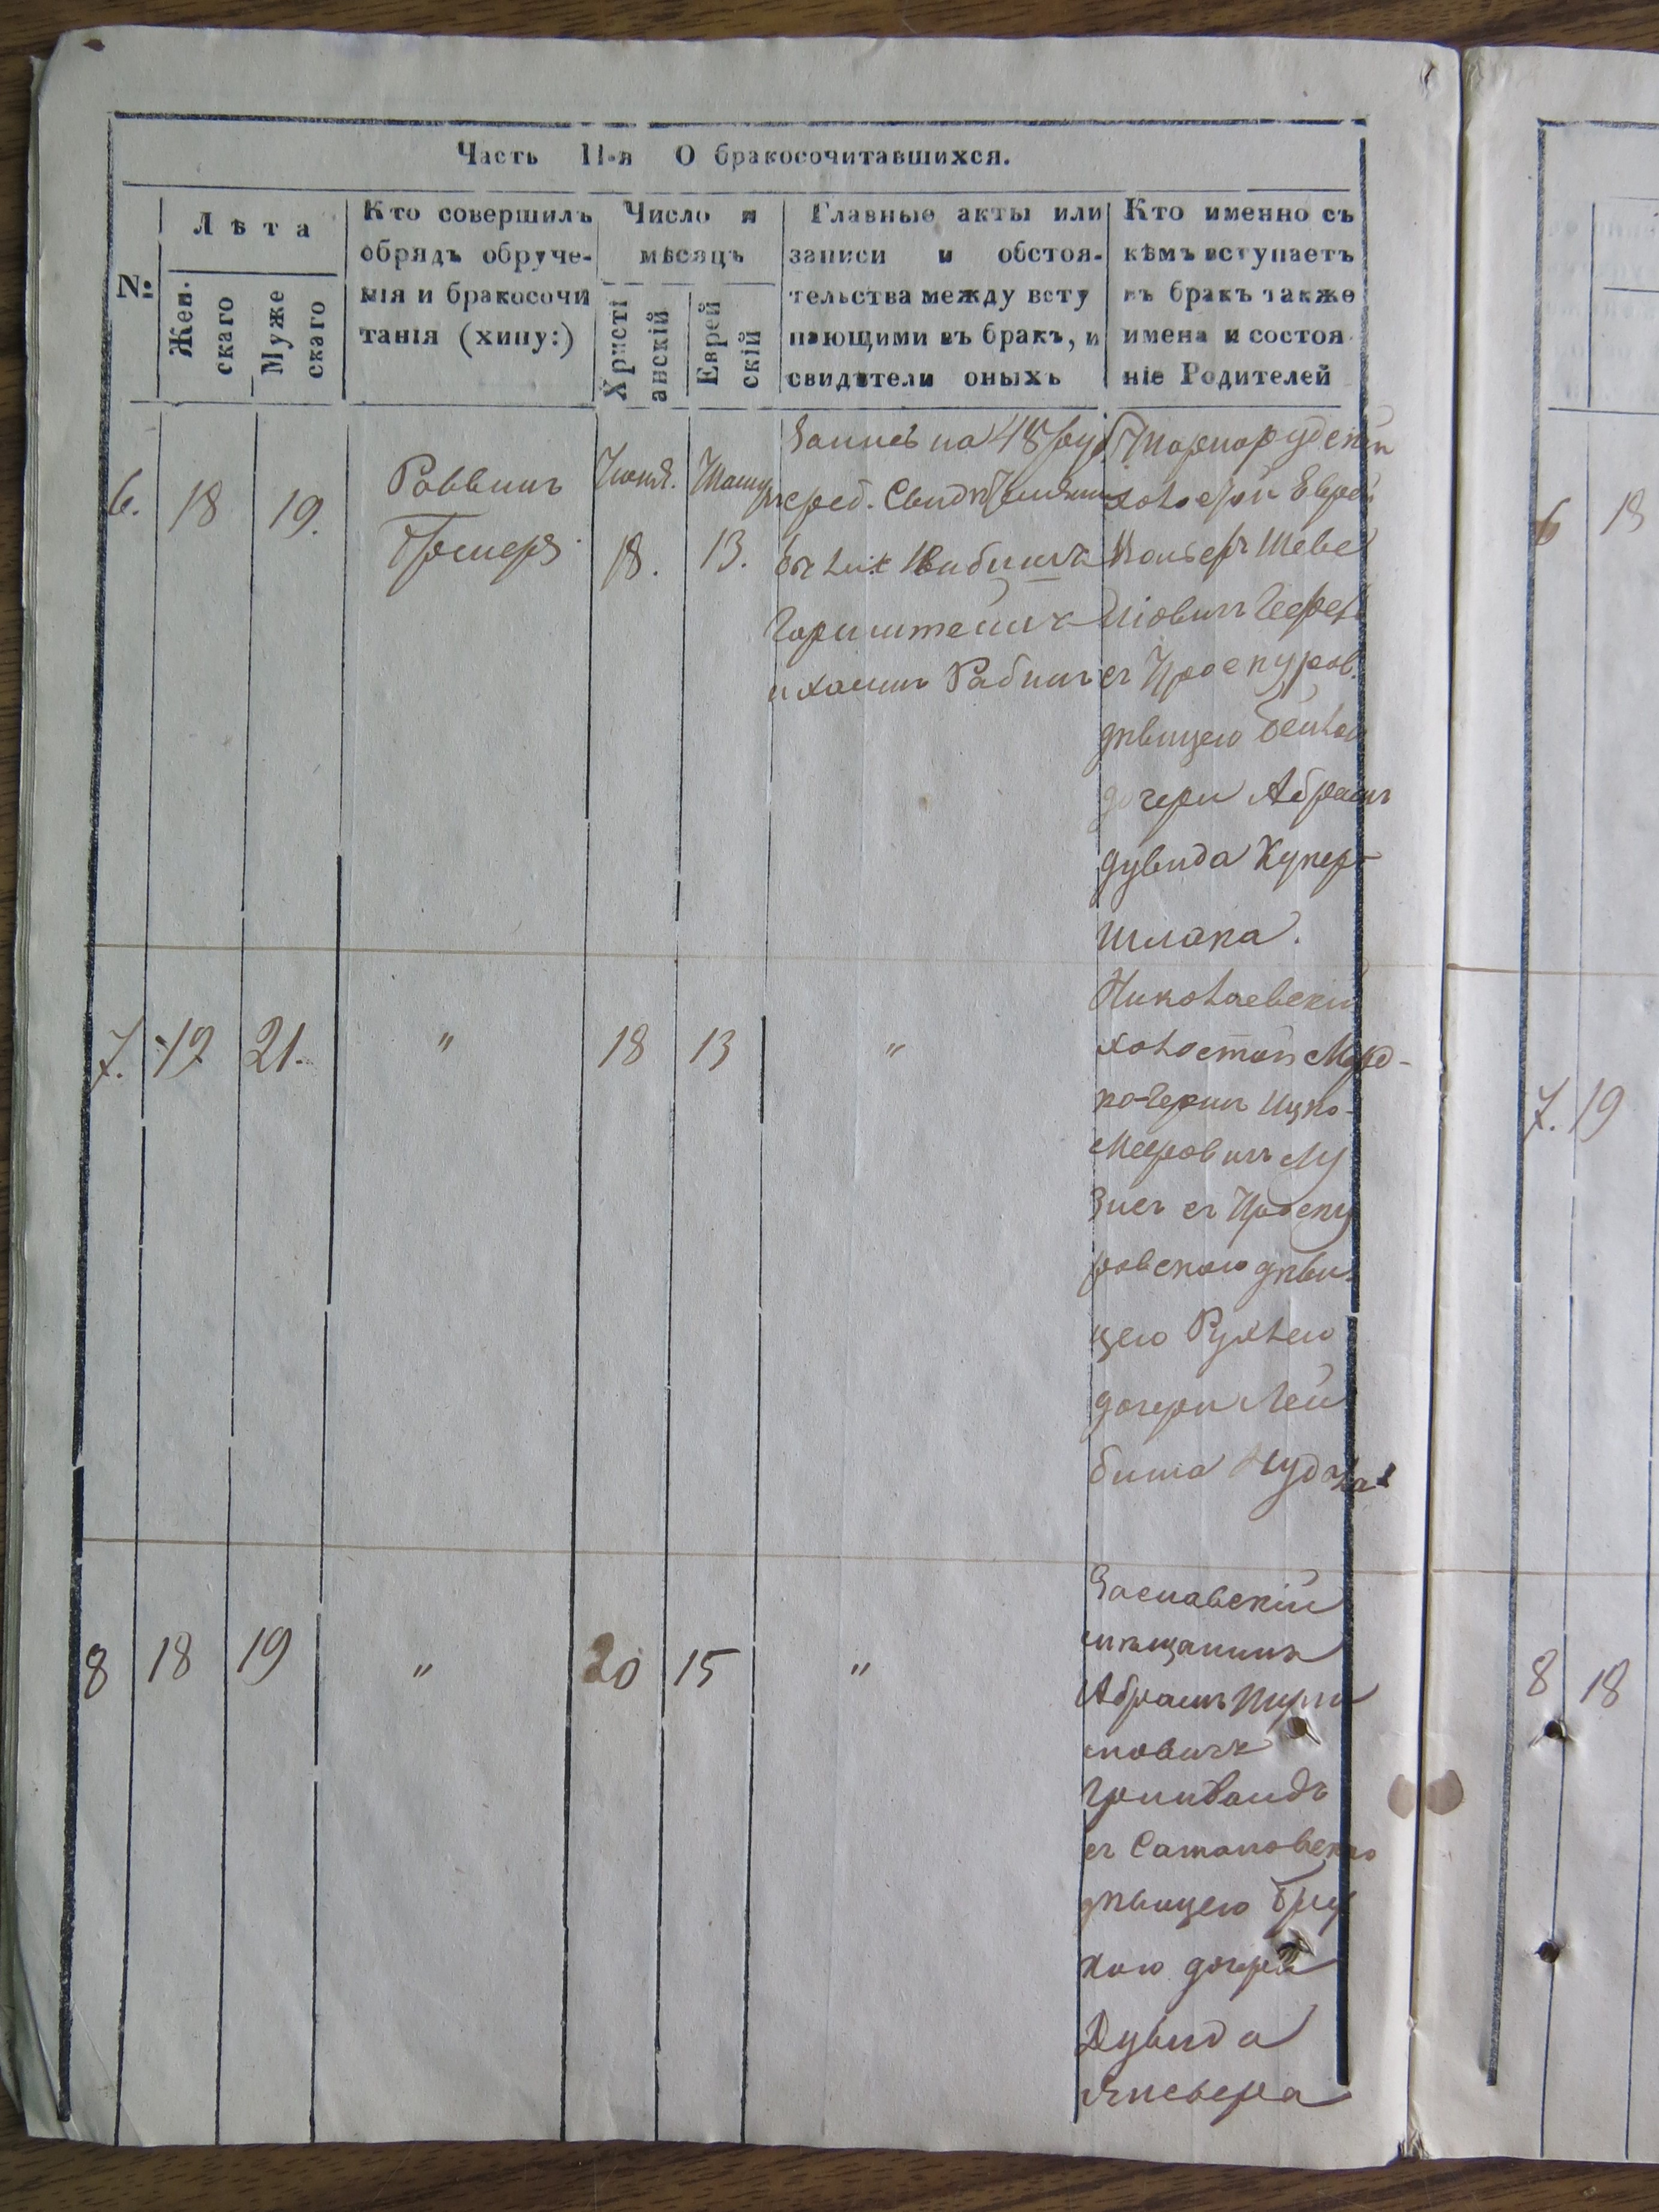 Часть II-я О бракосочитавшихся.
№
Лѣта
Жен.
скаго
Муже
скаго
Кто совершилъ
обрядъ обруче-
нія и бракосочи
танія (хипу:)
Число и
мѣсяцъ
Христі
анскій
Еврей
скій
Главные акты или
записи и обстоя-
тельства между всту
пающими въ бракъ, и
свидѣтели оныхъ
Кто именно съ
кѣмъ вступаетъ
въ бракъ также
имена и состоя
ніе Родителей
6.
18
19.
Раввинъ
Іюня.
18.
13.
Запись на 48 руб
сереб.
Горинштейнъ
и Хаимъ Рабинъ
холостой Еврей
Шевел
съ Проскуров.
дѣвицею Бейлою
дочери Абрамъ
Дувида Купер-
шлака.
7.
19
21.
"
18
13
"
Николаевскій
холостой Морд-
ко-Герш Ицко-
Мееровичъ Му
зисъ съ Проску
ровскою дѣви
цею Рухлею
дочери Лей
биша
8
18
19
"
20
15
"
Заславскій
мѣщанинъ
Абрамъ
новичъ
съ Сатановскою
дѣвицею Бру
хою дочери
Дувида
6
18
7.
19
8
18